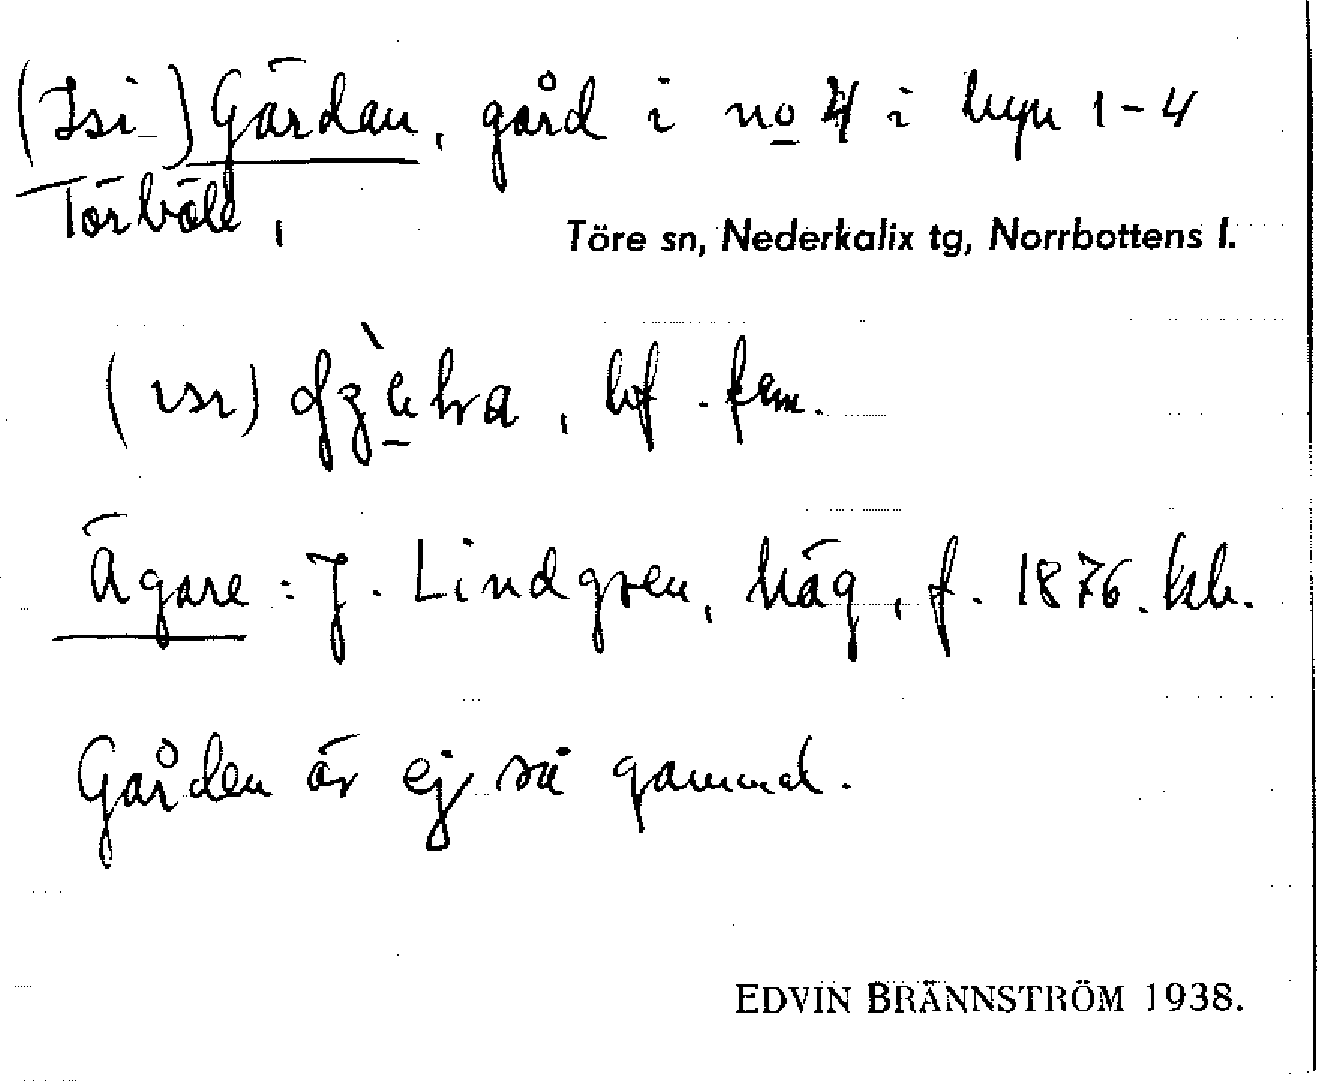 (Isi-) Gärdan, gård i no 4 i byn 1-4
Törböle,
Töre sn, Nederkalix tg, Norrbottens l.
bf. fem.
Ägare: J. Lindgren, häg, f. 1876.
Gården är ej så gammal.
EDVIN BRÄNNSTRÖM 1938.